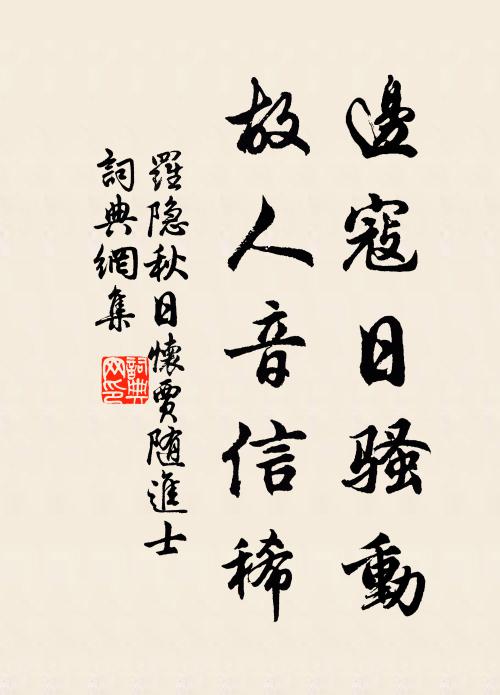 邊寇日騷動
故人音信稀
羅隐秋日懷賈随進士
詞典網集
詞典网印